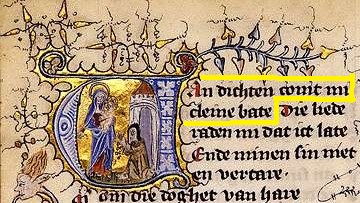 VAn dichten comt mi
cleine bate Die liede
raden mi dat ict late
Ende minen sin niet
en vertare.
om die doghet van hare